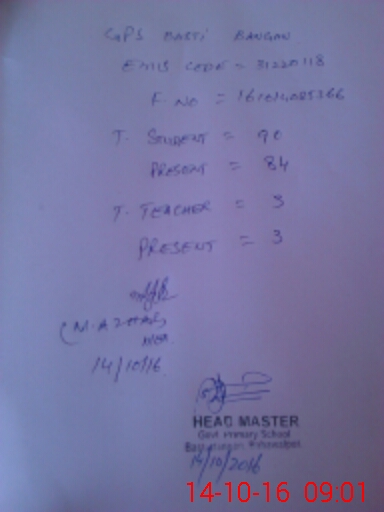 GPS BASTI BANGAN
EMIS CODE = 31220118
F. NO =
T. STUDENT = 90
PRESENT = 84
T. TEACHER = 3
PRESENT = 3
(M. AZHAR)
MEA
14/10/16
HEAD MASTER
Govt Primary School
14/10/2016
14-10-16 09:01